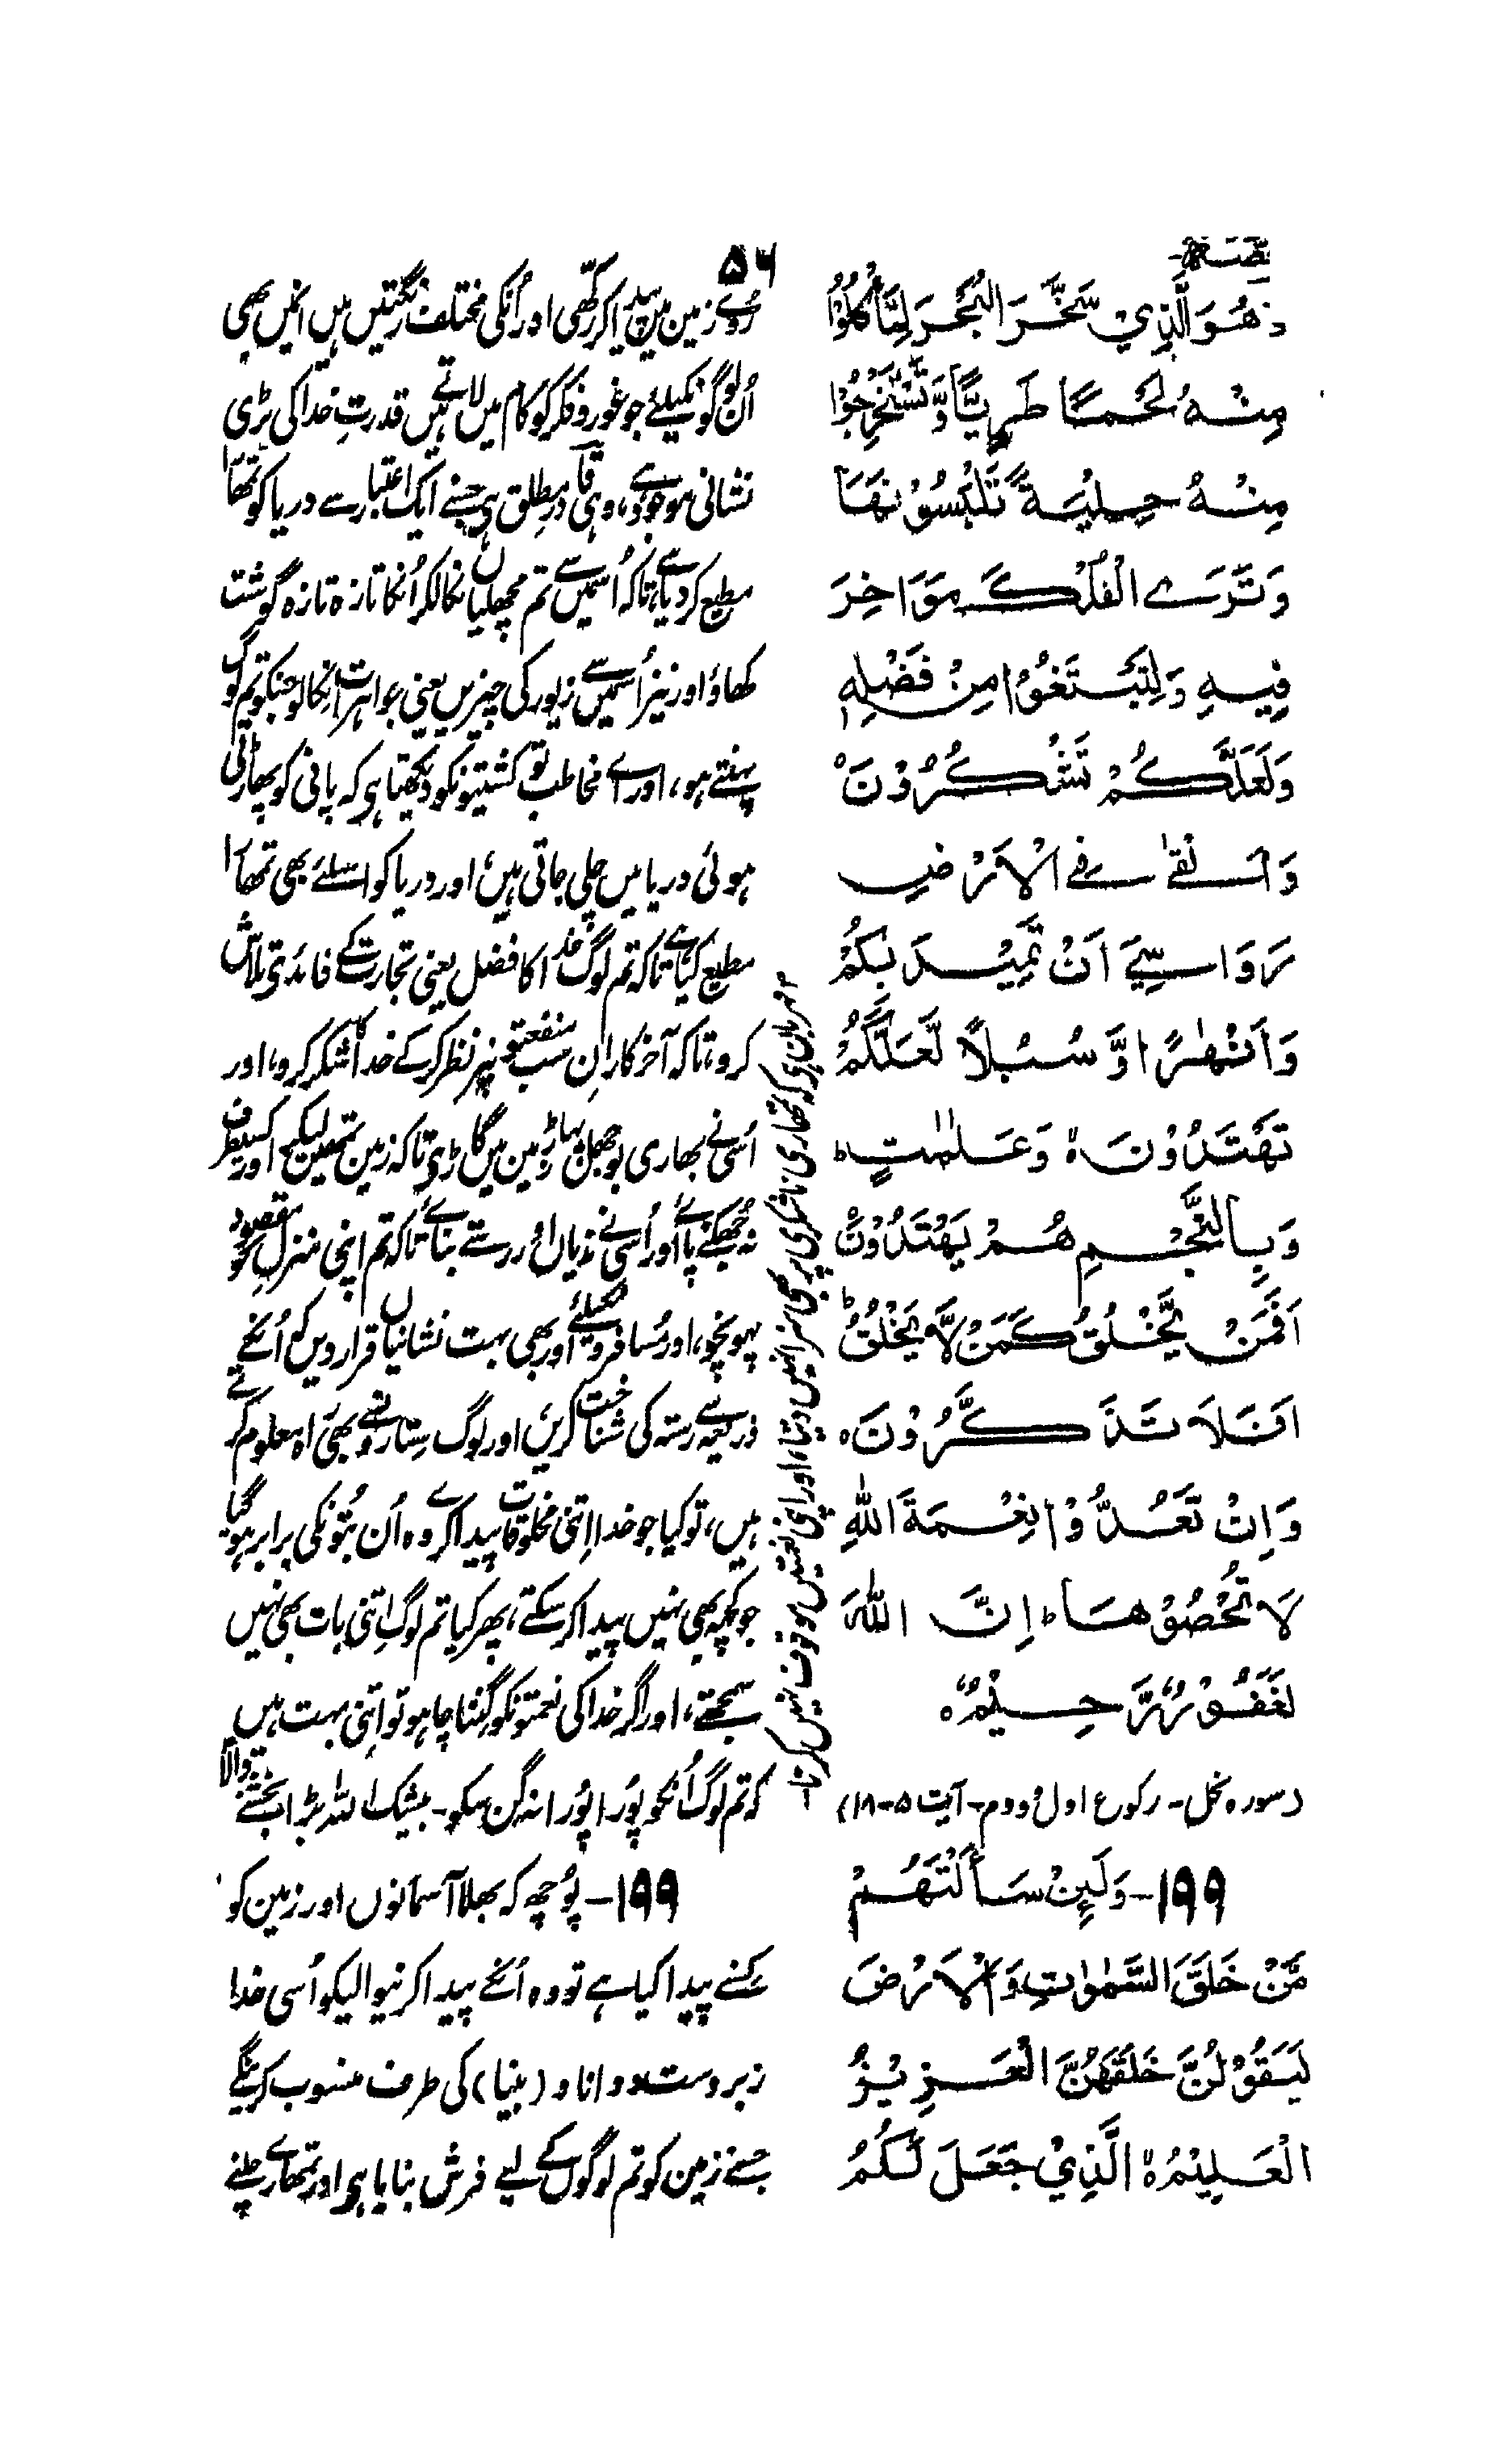 حصہ
۵۶
وَهُوَ الَّذِيْ سَخَّرَ الْبَحْرَ لِتَأْكُلُوْا
مِنْهُ لَحْمًا طَرِيًّا وَّتَسْتَخْرِجُوْا
مِنْهُ حِلْيَةً تَلْبَسُوْنَهَا
وَتَرَى الْفُلْكَ مَوَاخِرَ
فِيْهِ وَلِتَبْتَغُوْا مِنْ فَضْلِهٖ
وَلَعَلَّكُمْ تَشْكُرُوْنَ ہ
وَاَلْقٰى فِي الْاَرْضِ
رَوَاسِيَ اَنْ تَمِيْدَ بِكُمْ
وَاَنْهٰرًا وَّ سُبُلًا لَّعَلَّكُمْ
تَهْتَدُوْنَ ہ وَعَلٰمٰتٍ ط
وَبِالنَّجْمِ هُمْ يَهْتَدُوْنَ ہ
اَفَمَنْ يَّخْلُقُ كَمَنْ لَّا يَخْلُقُ ط
اَفَلَا تَذَكَّرُوْنَ ہ
وَاِنْ تَعُدُّوْا نِعْمَةَ اللّٰهِ
لَا تُحْصُوْهَا ط اِنَّ اللّٰهَ
لَغَفُوْرٌ رَّحِيْمٌ ہ
(سورہ نحل۔ رکوع اول و دوم۔ آیت ۵-۱۸)
۱۹۹-وَلَئِنْ سَأَلْتَهُمْ
مَّنْ خَلَقَ السَّمٰوٰتِ وَالْاَرْضَ
لَيَقُوْلُنَّ خَلَقَهُنَّ الْعَزِيْزُ
الْعَلِيْمُ ہ الَّذِيْ جَعَلَ لَكُمُ
روئے زمین میں پیدا کر رکھی اور اُنکی مختلف رنگتیں ہیں انمیں بھی
اُن لوگونکیلئے جو غور و فکر کو کام میں لاتے ہیں قدرتِ خدا کی بڑی
نشانی موجود ہے، وہی قادرِ مطلق ہی جسنے ایک اعتبار سے دریا کو تمھارا
مطیع کر دیا ہے، تاکہ اُسمیں سے تم مچھلیاں نکالکر اُنکا تازہ تازہ گوشت
کھاؤ اور نیز اُسمیں سے زیور کی چیزیں یعنی جواہرات نکالو جنکو تم لوگ
پہنتے ہو، اور اے مخاطب تو کشتیونکو دیکھتا ہی کہ پانی کو پھاڑتی
ہوئی دریا میں چلی جاتی ہیں، اور دریا کو اسلئے بھی تمھارا
مطیع کیا ہے تاکہ تم لوگ خدا کا فضل یعنی تجارت کے فائدے تلاش
کرو، تاکہ آخر کار اِن سب منفعتونپر نظر کر کے خدا کا شکر کرو، اور
اُسی نے بھاری بوجھل پہاڑ زمین میں گاڑی تاکہ زمین تمھیں لیکے اور کسیطرف
نہ جھکنے پائے اور اُسی نے ندیاں اور رستے بنائے تاکہ تم اپنی منزلِ مقصود کو
پہونچو، اور مُسافرونکیلئے اور بھی بہت نشانیاں قرار دیں کہ اُنکے
ذریعہ سے رستہ کی شناخت کریں اور لوگ ستارونسے بھی راہ معلوم کرتے
ہیں، تو کیا جو خدا اِتنی مخلوقات پیدا کرے وہ اُن بُتونکی برابر ہو گیا
جو کچھ بھی نہیں پیدا کر سکتے، پھر کیا تم لوگ اِتنی بات بھی نہیں
سمجھتے، اور اگر خدا کی نعمتونکو گننا چاہو تو اِتنی بہت ہیں
کہ تم لوگ اُنکو پُورا پُورا نہ گن سکو۔ بیشک اللہ بڑا بخشنے والا
مہربان ہی کہ تمھاری ناشکری پر بھی سزا نہیں دیتا، اور اپنی نعمتیں موقوف نہیں کرتا
۱۹۹- پُوچھ کہ بھلا آسمانوں اور زمین کو
کِسنے پیدا کیا ہے تو وہ اُنکے پیدا کرنیوالیکو اُسی خدا
زبردست و دانا و (بینا) کی طرف منسوب کرینگے
جسنے زمین کو تم لوگوں کے لیے فرش بنایا ہی اور تمھارے چلنے